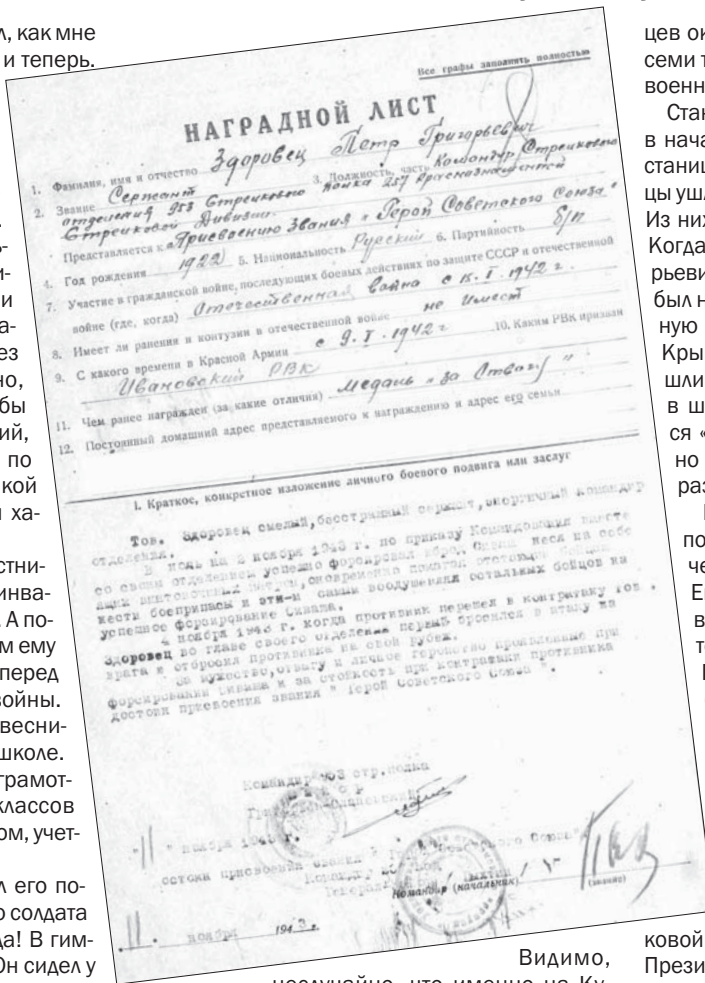 л, как мне
и теперь.
ез
но,
бы
ий,
по
кой
и ха-
стни-
инва-
А по-
м ему
перед
войны.
весни-
школе.
грамот-
классов
ом, учет-
л его по-
о солдата
да! В гим-
Он сидел у
Все графы заполнять полностью
НАГРАДНОЙ ЛИСТ
1. Фамилия, имя и отчество Здоровец Петр Григорьевич
2. Звание Сержант 3. Должность, часть Командир Стрелкового
отделения 953 Стрелкового полка 257 Краснознаменной
Стрелковой Дивизии.
Представляется к Присвоению Звания "Герой Советского Союза"
4. Год рождения 1922 5. Национальность Русский 6. Партийность б/п
7. Участие в гражданской войне, последующих боевых действиях по защите СССР и отечественной
войне (где, когда) Отечественная война с 1942 г.
8. Имеет ли ранения и контузии в отечественной войне не имеет
9. С какого времени в Красной Армии с 9. 1942 г 10. Каким РВК призван
Ивановский РВК
11. Чем ранее награжден (за какие отличия) Медаль "За Отвагу"
12. Постоянный домашний адрес представляемого к награждению и адрес его семьи
I. Краткое, конкретное изложение личного боевого подвига или заслуг
Тов. Здоровец смелый, бесстрашный сержант, энергичный командир
отделения.
В ночь на 2 ноября 1943 г. по приказу Командования вместе
со своим отделением успешно форсировал вброд Сиваш неся на себе
ящик винтовочных патрон, одновременно помогал отстающим бойцам
нести боеприпасы и этим самым воодушевлял остальных бойцов на
успешное форсирование Сиваша.
4 ноября 1943 г. когда противник перешел в контратаку тов.
Здоровец во главе своего отделения первым бросился в атаку на
врага и отбросил противника на свой рубеж.
За мужество, отвагу и личное геройство проявленные при
форсировании Сиваша и за стойкость при контратаках противника
достоин присвоения звания "Герой Советского Союза".
Командир 953 стр. полка
"11" ноября 1943 г.
достоин присвоения звания Героя Советского Союза
Командир
Генерал
Командир (начальник)
(звание)
"11" ноября 1943 г.
цев ок
семи т
военн
Стан
в нача
станиц
цы уш
Из них
Когда
рьеви
был н
ную
Кры
шли
в ш
ся «
но
раз
по
че
Е
в
т
Видимо,
неслучайно, что именно на Ку-
ковой
Прези